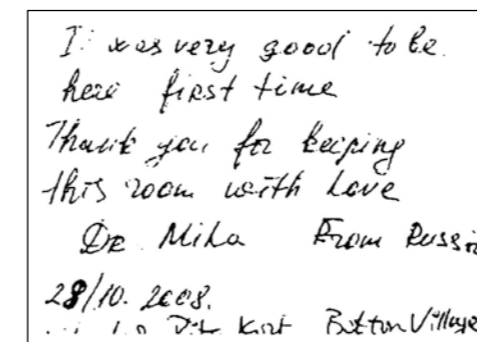 I was very good to be
here first time
Thank you for keeping
this room with Love
Dr Mila From Russi
28/10.2008.
Kirt Botton Village